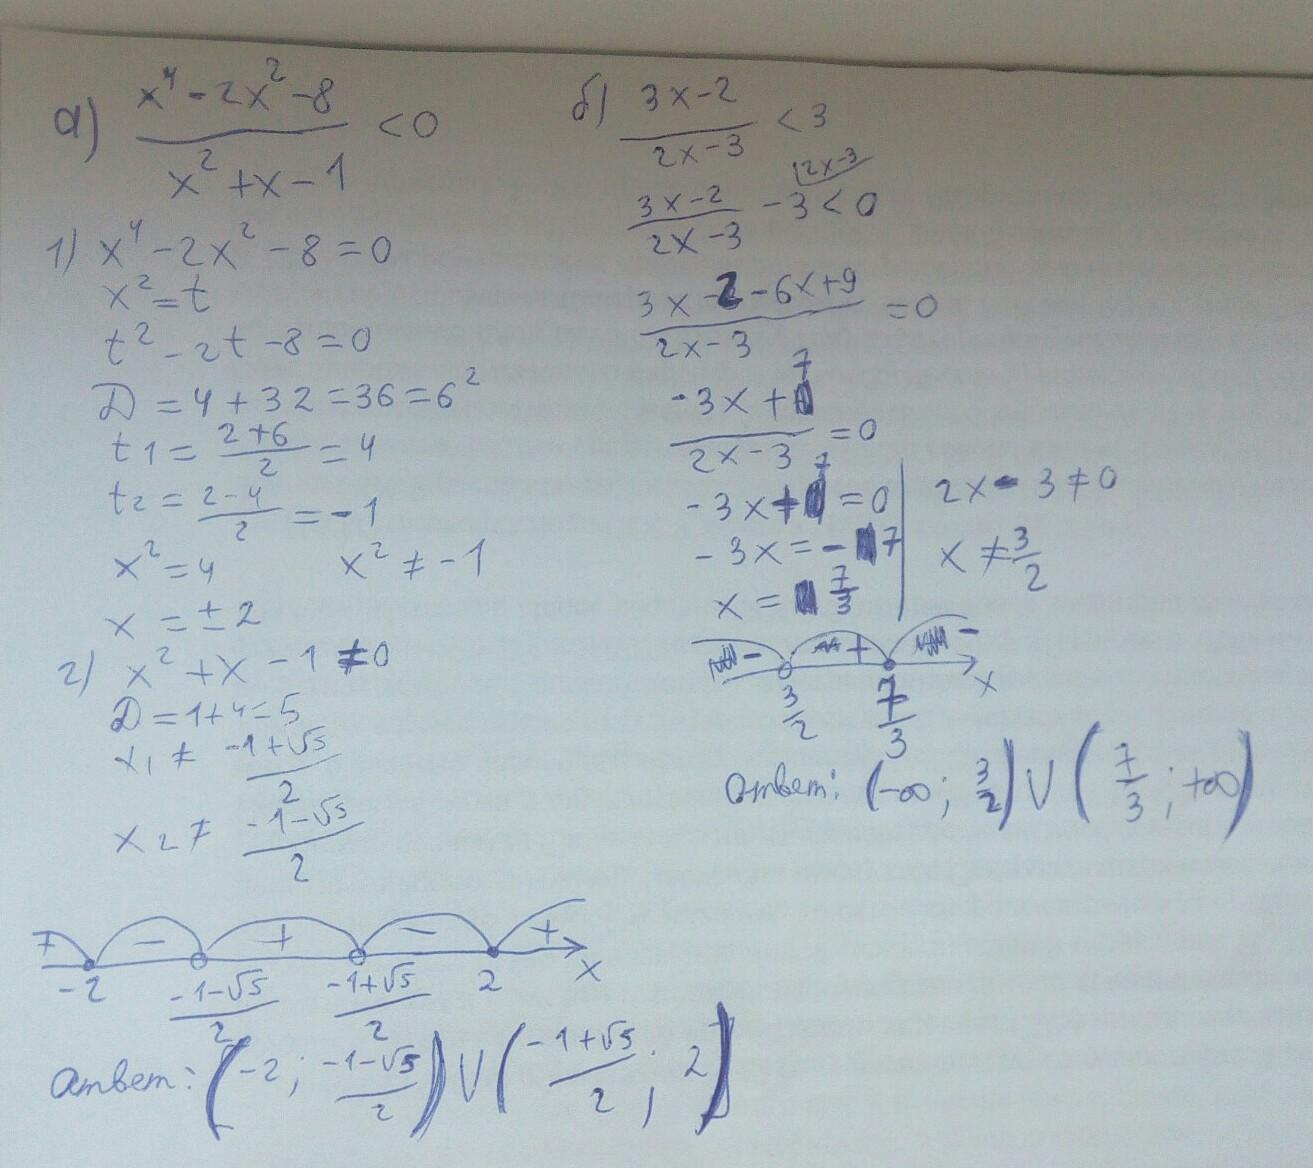 а) (x⁴-2x²-8)/(x²+x-1) <0
1) x⁴-2x²-8=0
x²=t
t²-2t-8=0
D=4+32=36=6²
t1=(2+6)/2=4
t2=(2-4)/2=-1
x²=4 x²≠-1
x=±2
2) x²+x-1≠0
D=1+4=5
x₁≠(-1+√5)/2
x2≠(-1-√5)/2
+ - + - + x
-2 (-1-√5)/2 (-1+√5)/2 2
Ответ: (-2; (-1-√5)/2) ∪ ((-1+√5)/2; 2)
б) (3x-2)/(2x-3) <3
(3x-2)/(2x-3) -3<0 2x-3
(3x-2-6x+9)/(2x-3) =0
(-3x+7)/(2x-3) =0
-3x+7=0 2x-3≠0
-3x=-7 x≠3/2
x=7/3
- + - x
3/2 7/3
Ответ: (-∞; 3/2) ∪ (7/3; +∞)